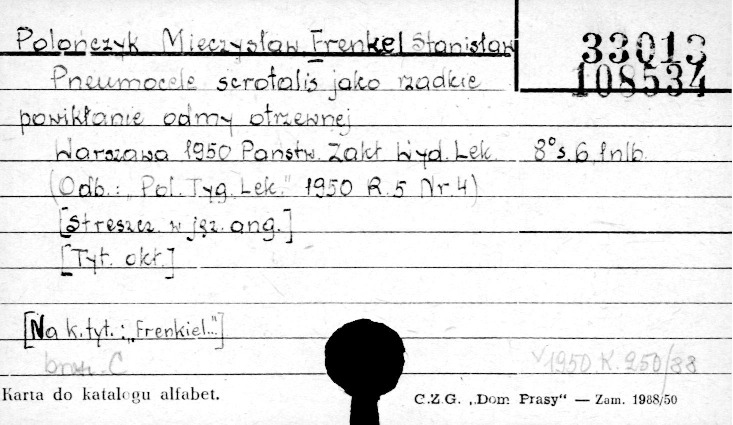 Polończyk Mieczysław Frenkel Stanisław
33013
108534
Pneumocele scrotalis jako rzadkie
powikłanie odmy otrzewnej
Warszawa 1950 Państw. Zakł. Wyd. Lek. 8° s. 6, 1nlb.
(Odb.: „Pol. Tyg. Lek." 1950 R. 5 Nr. 4)
[Streszcz. w jęz. ang.]
[Tyt. okł.]
[Na k. tyt.: „Frenkiel..."]
brosz. C 1950 K. 250/88
Karta do katalogu alfabet.
C.Z.G. „Dom Prasy“ — Zam. 1988/50